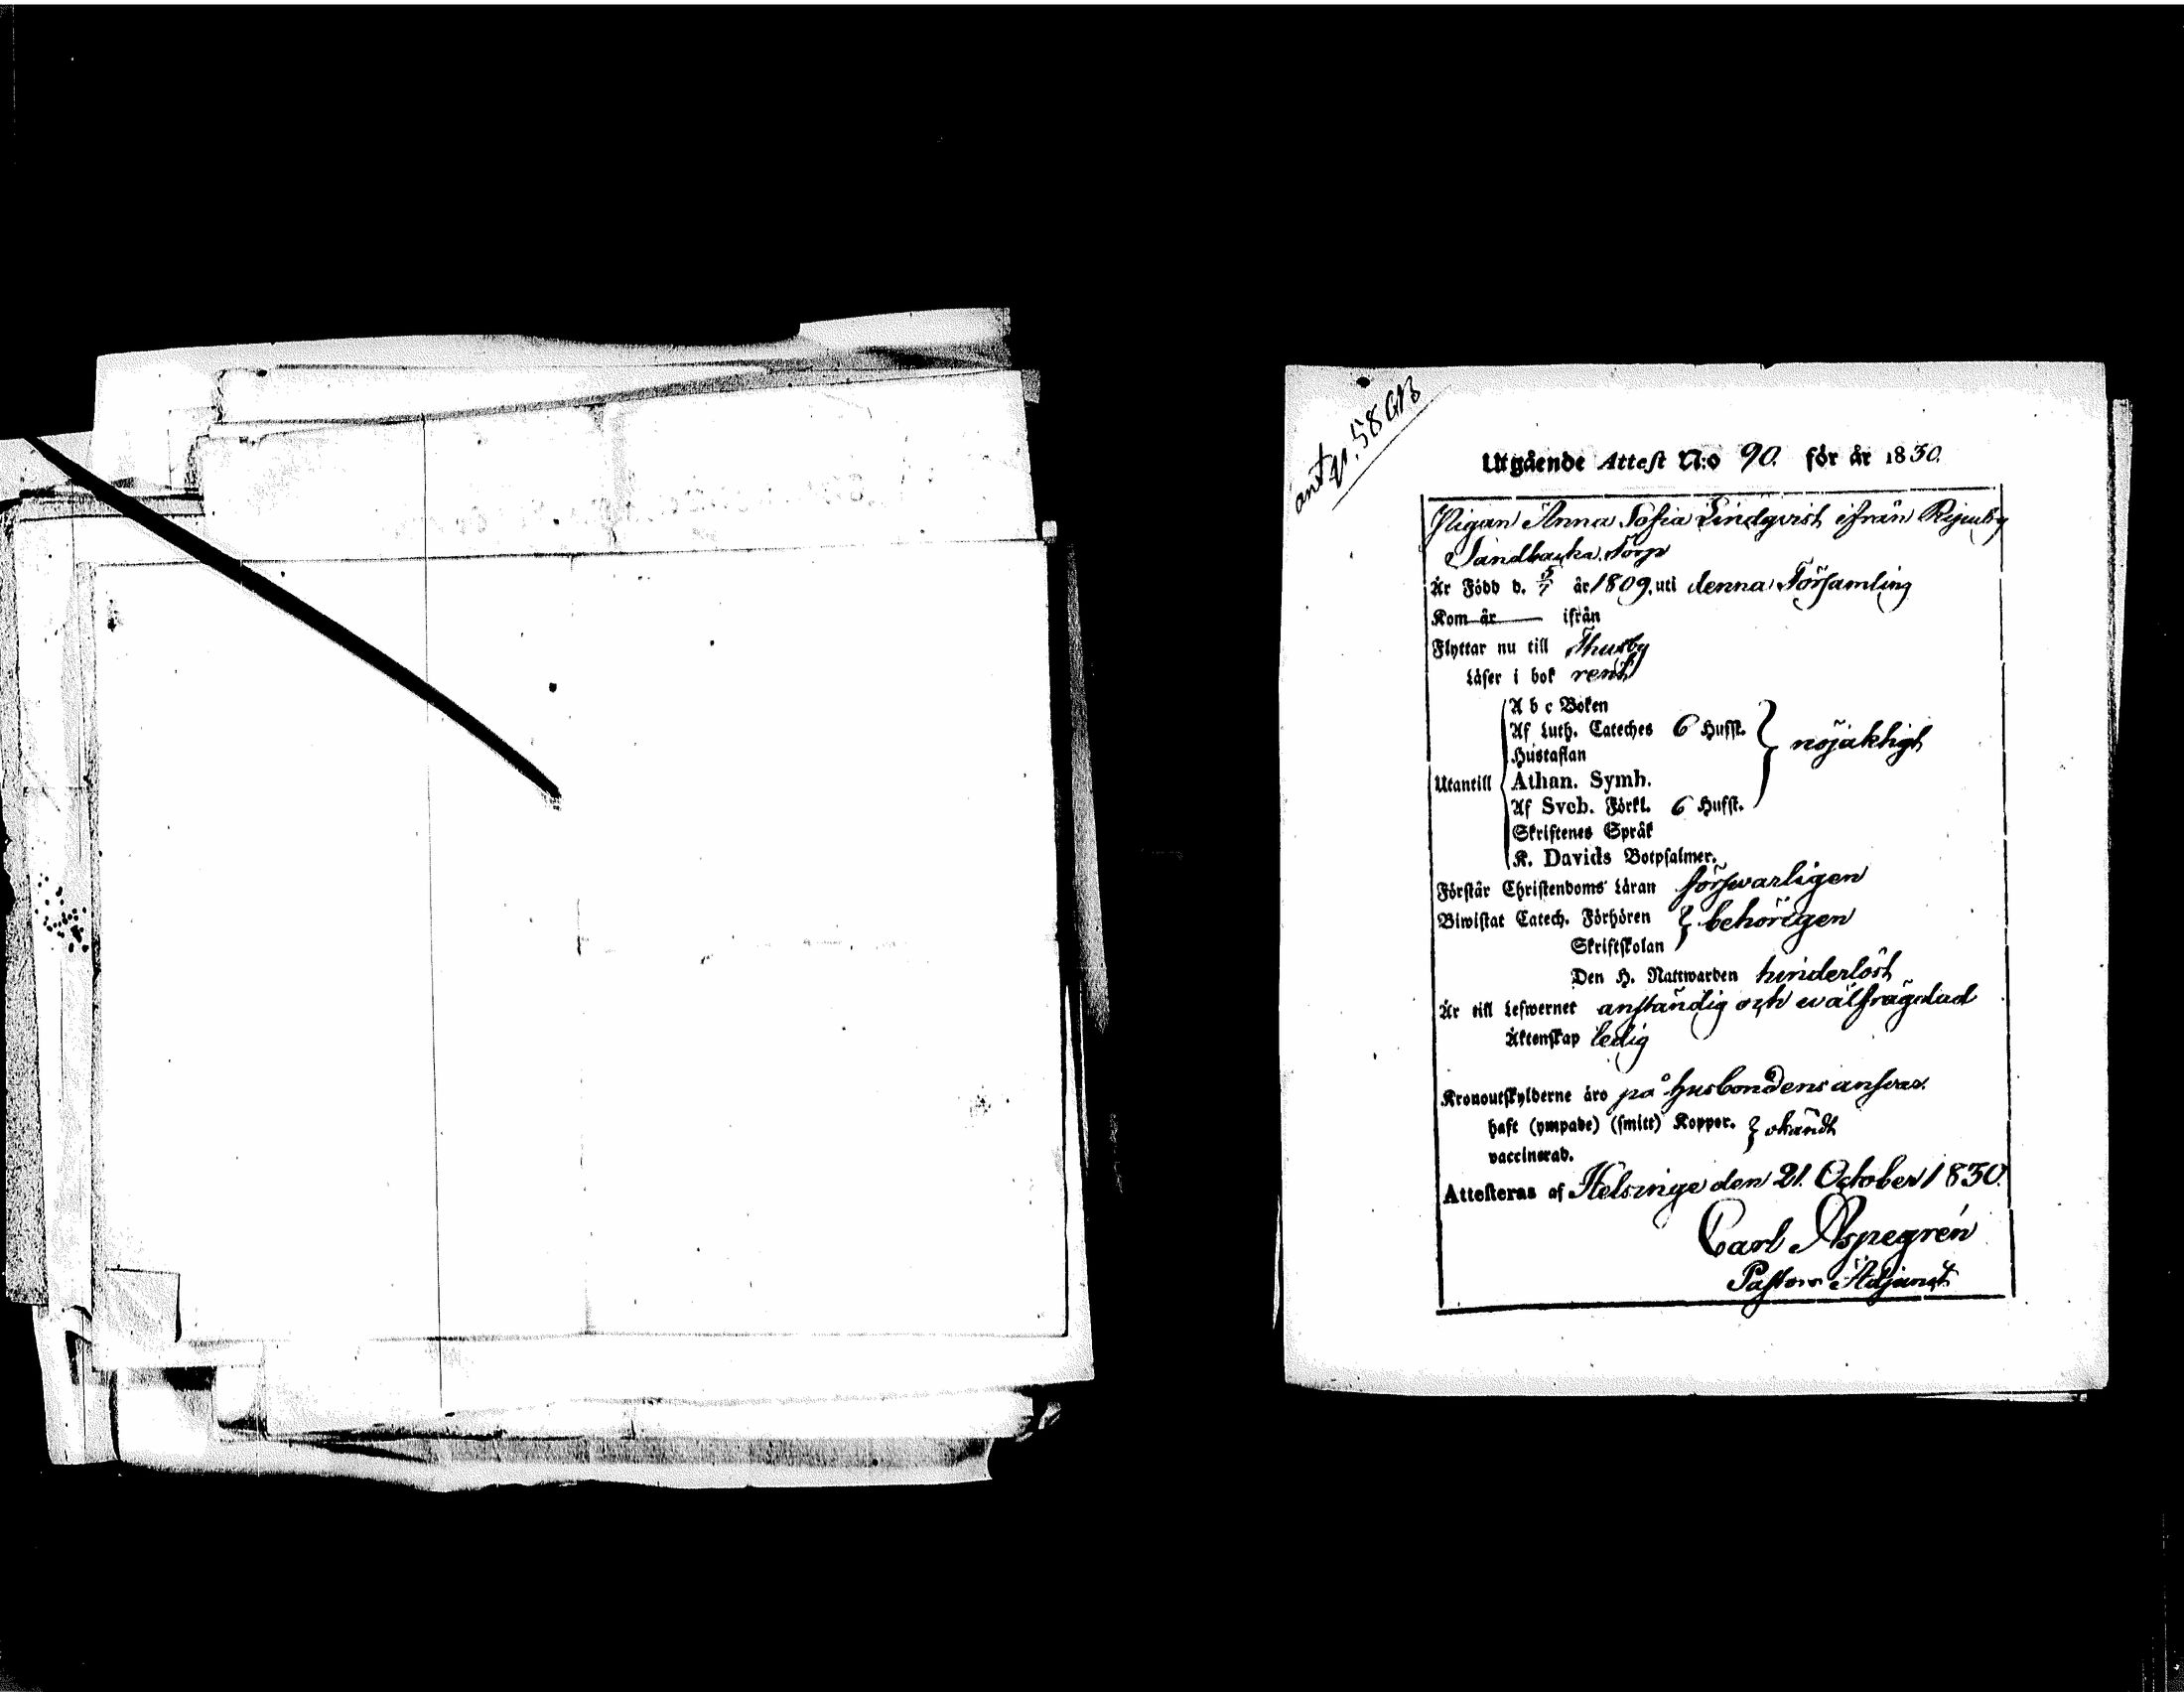 ant. p. 58 GB
Utgående Attest N:o 90. för år 1830.
Pigan Anna Sofia Lindqvist ifrån
Sandbacka Torp
Är Född d. 5/7 år 1809. uti denna Församling
Kom år ifrån
Flyttar nu till Thusby
Läser i bok rent
A b c Boken
Af Luth. Cateches 6 Hufst.
Hustaflan
nöjaktigt
Utantill
Athan. Symb.
Af Sveb. Förkl. 6 Hufst.
Skriftenes Språk
K. Davids Botpsalmer.
Förstår Christendoms Läran försvarligen
Biwistat Catech. Förhören behörigen
Skriftskolan
Den H. Nattwarden hinderlöst
Är till Lefwernet anständig och wälfrägdad
Äktenskap ledig
Kronoutskylderne äro på husbondens answar.
haft (ympade) (smitt) Koppor. okändt
vaccinerad.
Attesteras af Helsinge den 21. October 1830.
Carl Aspegrén
Pastors Adjunct